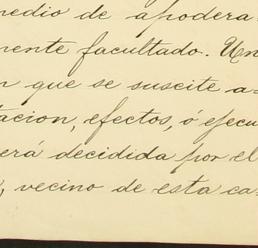 medio de apodera
mente facultado. Un
n que se suscite a-
tacion, efectos, ó ejecu
erá decidida por el
, vecino de esta ca-